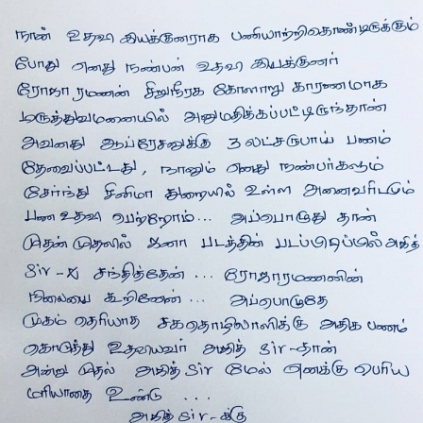 நான் உதவி இயக்குனராக பணியாற்றிகொண்டிருக்கும்
போது எனது நண்பன் உதவி இயக்குனர்
ரோஜாரமணன் சிறுநீரக கோளாறு காரணமாக
மருத்துவமனையில் அனுமதிக்கப்பட்டிருந்தான்
அவனது ஆப்ரேசனுக்கு 3 லட்சருபாய் பணம்
தேவைப்பட்டது, நானும் எனது நண்பர்களும்
சேர்ந்து சினிமா துறையில் உள்ள அனைவரிடமும்
பண உதவி பெற்றோம்... அப்பொழுது தான்
முதன் முதலில் ஜனா படத்தின் படப்பிடிப்பில் அஜித்
Sir-ஐ சந்தித்தேன்... ரோஜாரமணனின்
நிலையை கூறினேன்... அப்பொழுதே
முகம் தெரியாத சகதொழிலாளிக்கு அதிக பணம்
கொடுத்து உதவியவர் அஜித் Sir-தான்
அன்று முதல் அஜித் Sir மேல் எனக்கு பெரிய
மரியாதை உண்டு ...
அஜித் Sir-க்கு